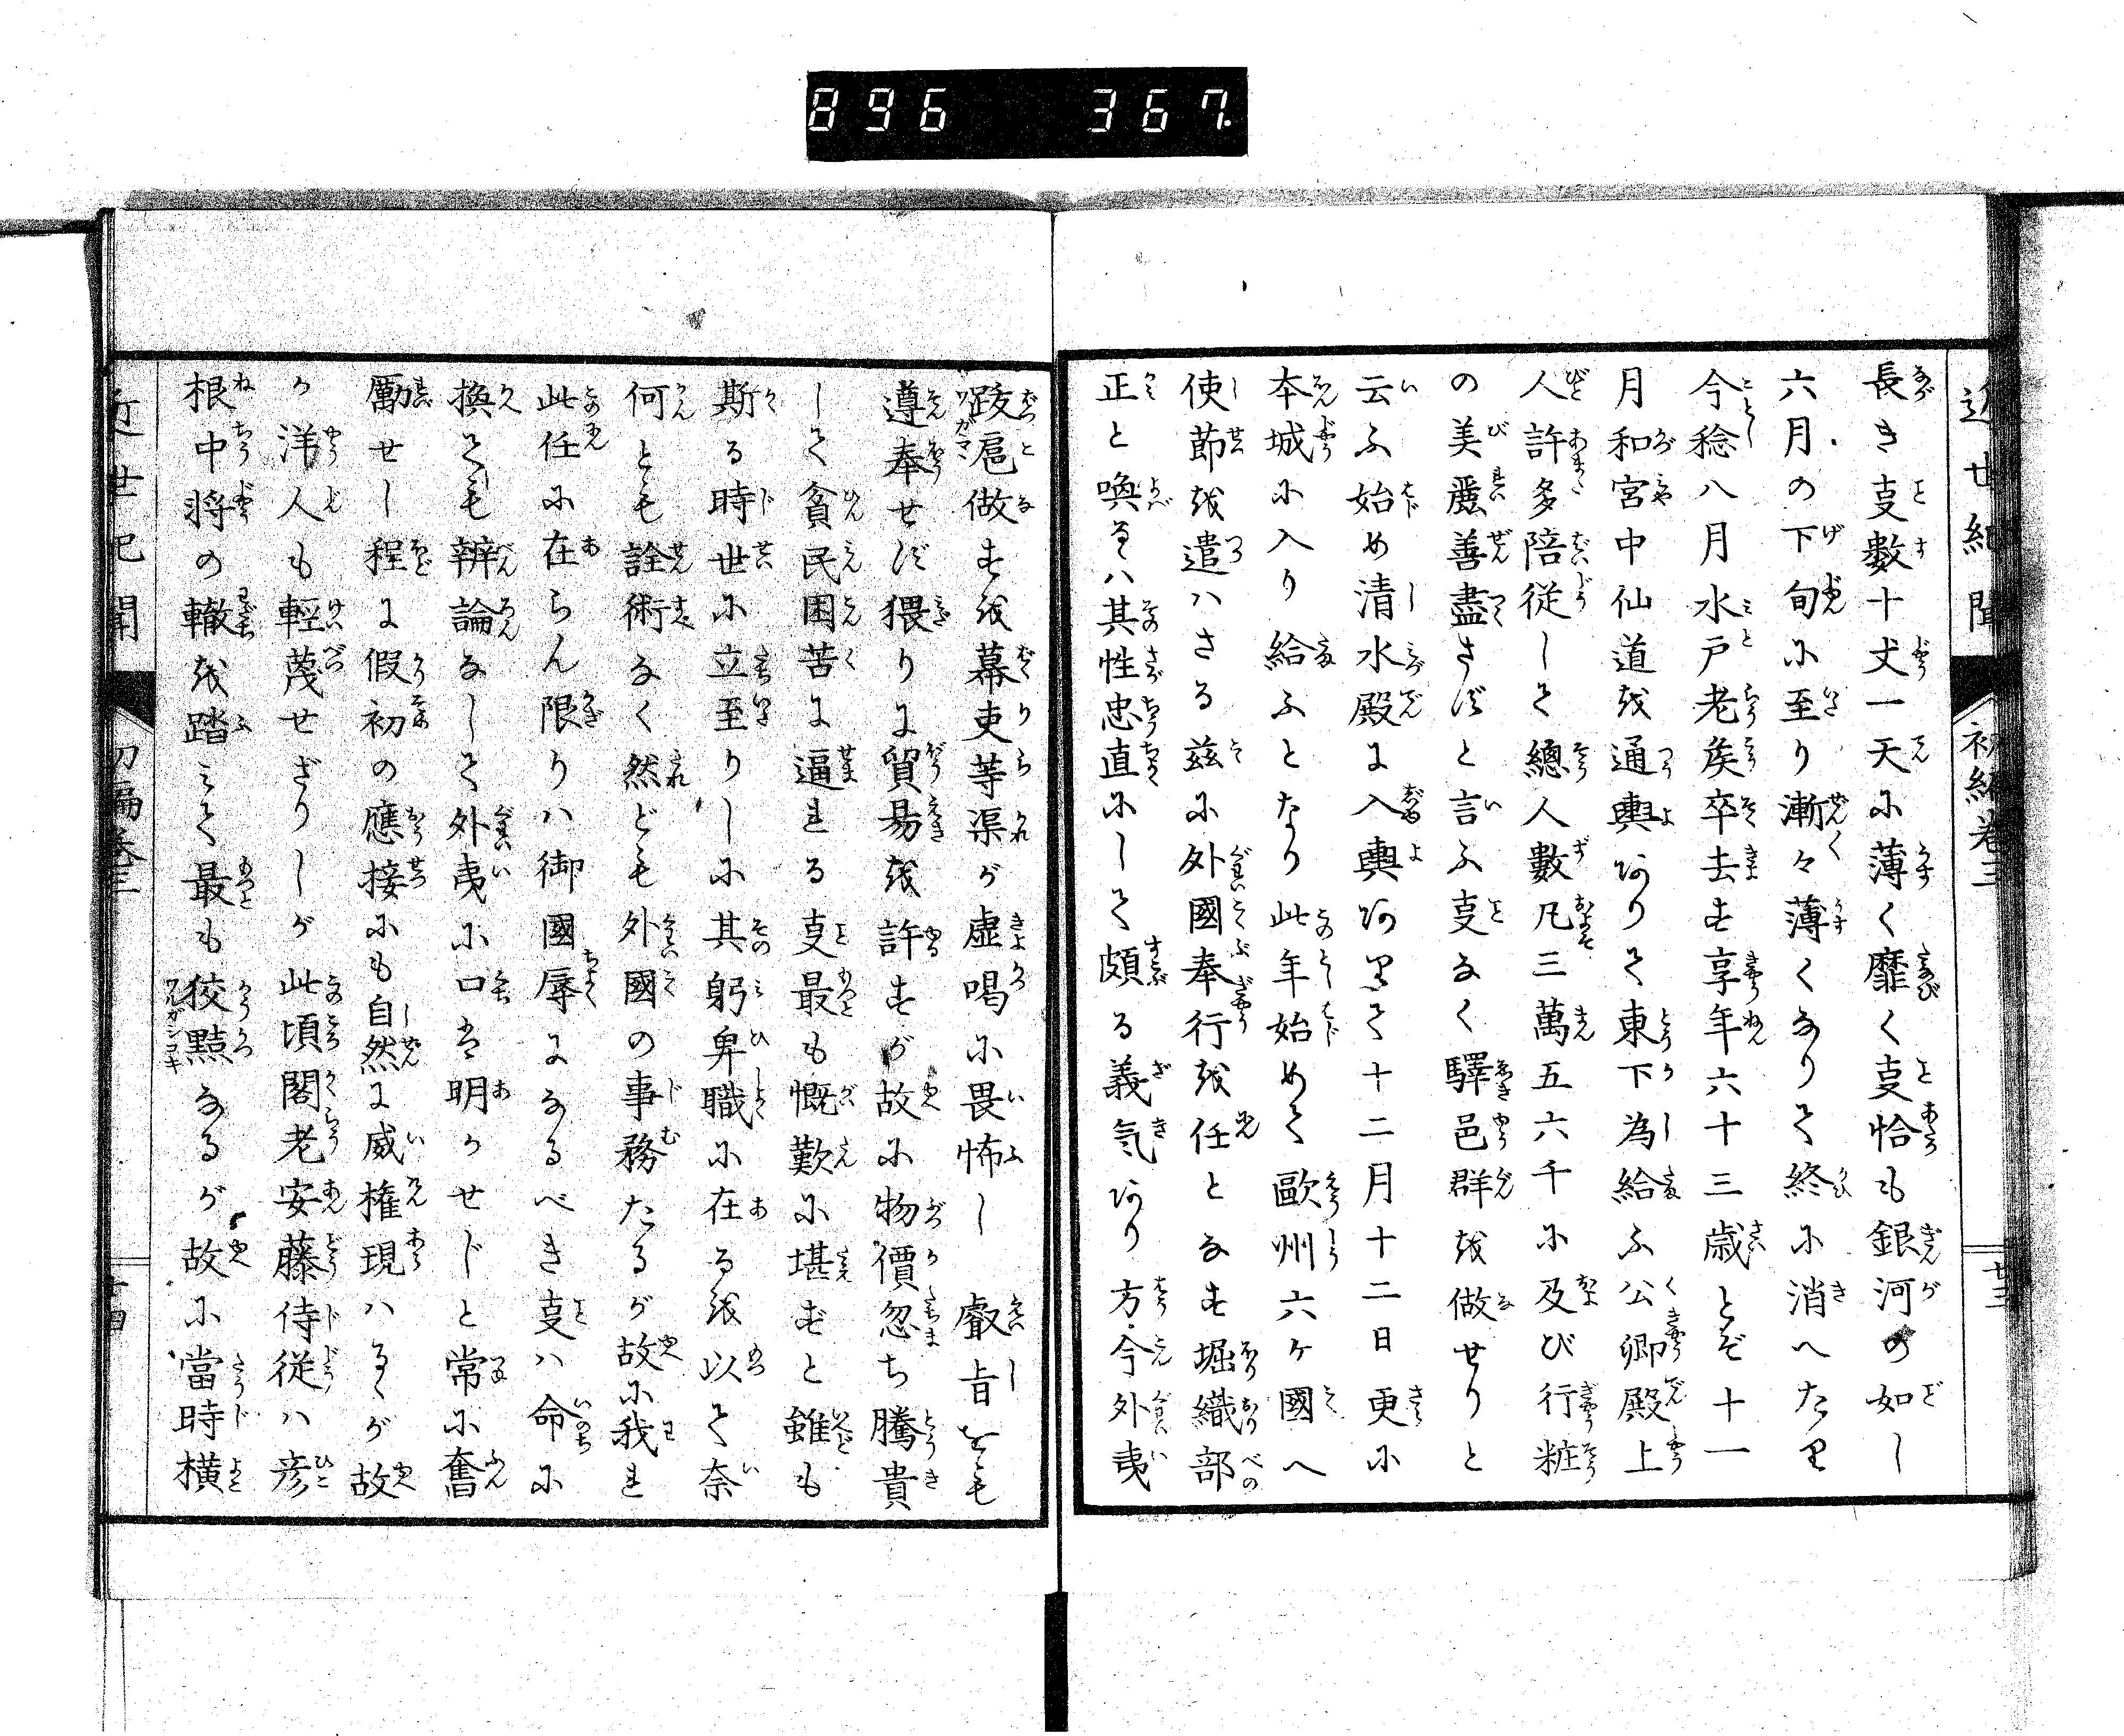 896 367.
近世紀聞 初編巻三 廿三
長き㕝数十丈一天に薄く靡く㕝恰も銀河の如し
六月の下旬に至り漸々薄くなりて終に消へたり
今稔八月水戸老侯卒去す享年六十三歳とぞ十一
月和宮中仙道を通輿ありて東下為給ふ公卿殿上
人許多陪従して總人數凡三萬五六千に及び行粧
の美麗善盡さずと言ふ㕝なく驛邑群を做せりと
云ふ始め清水殿に入輿ありて十二月十二日更に
本城に入り給ふとなり此年始めて歐州六ヶ國へ
使節を遣はさる茲に外國奉行を任となす堀織部
正と喚るハ其性忠直にして頗る義気あり方今外夷
跋扈做すを幕吏等渠が虚喝に畏怖し 叡旨をも
遵奉せず猥りに貿易を許すが故に物價忽ち騰貴
して貧民困苦に逼れる㕝最も慨歎に堪ずと雖も
斯る時世に立至りしに其躬卑職に在るを以て奈
何とも詮術なく然ども外國の事務たるが故に我れ
此任に在らん限りハ御國辱になるべき㕝ハ命に
換ても辨論なして外夷に口を明かせじと常に奮
勵せし程に假初の應接にも自然に威権現ハるゝが故
か洋人も輕蔑せざりしが此頃閣老安藤侍従ハ彦
根中将の轍を踏みて最も狡黠なるが故に當時横
近世紀聞 初編巻三 廿四